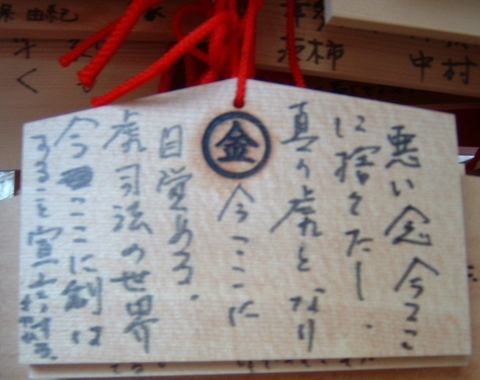 悪い念今ここ
に捨てたし、
真の虎となり
金
今ここに
目覚ある。
虎司法の世界
今ここに創は
することを宣言する。
由紀
中村